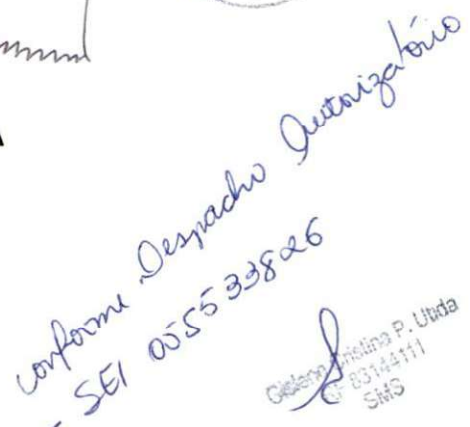 conforme Despacho Autorizatório
- SEI 055533826
Cristina P. Utida
83144111
SMS